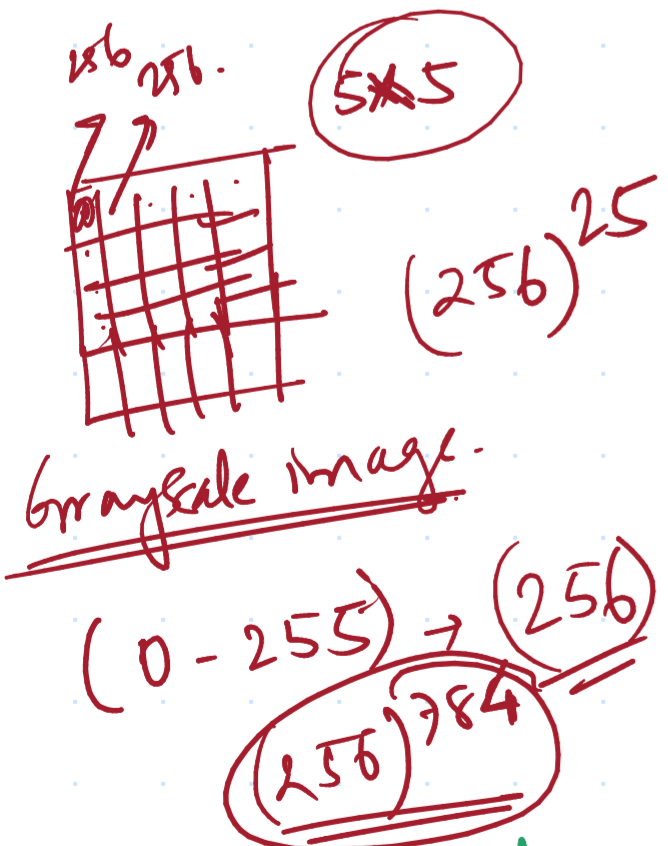 256 256.
5x5
(256)^25
Grayscale image.
(0-255) → (256)
(256)^784